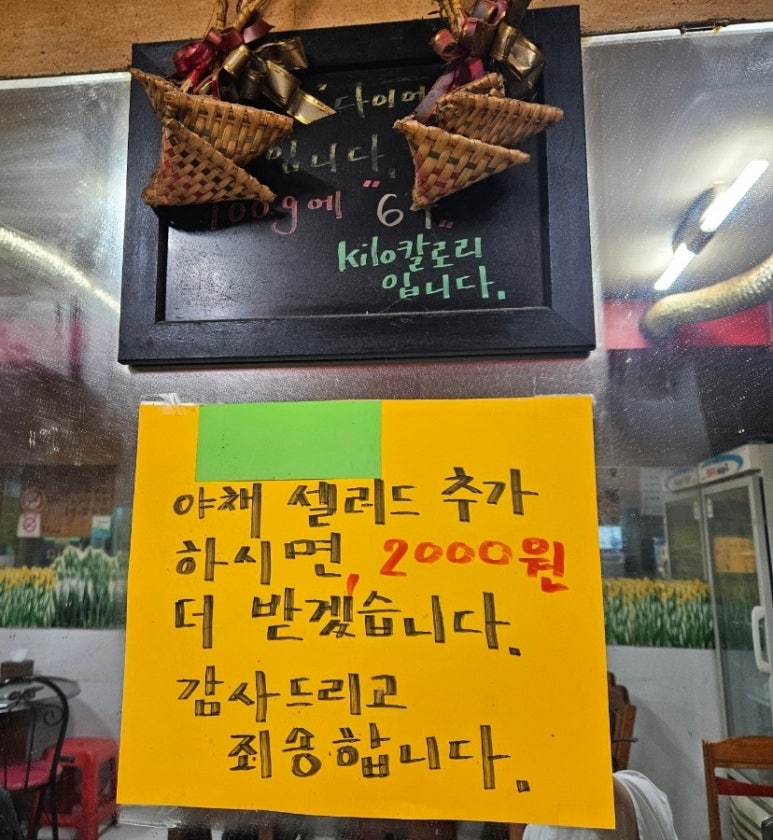 입니다.
100g에 "6
kilo칼로리
입니다.
야채 셀러드 추가
하시면, 2000원
더 받겠습니다.
감사드리고
죄송합니다.